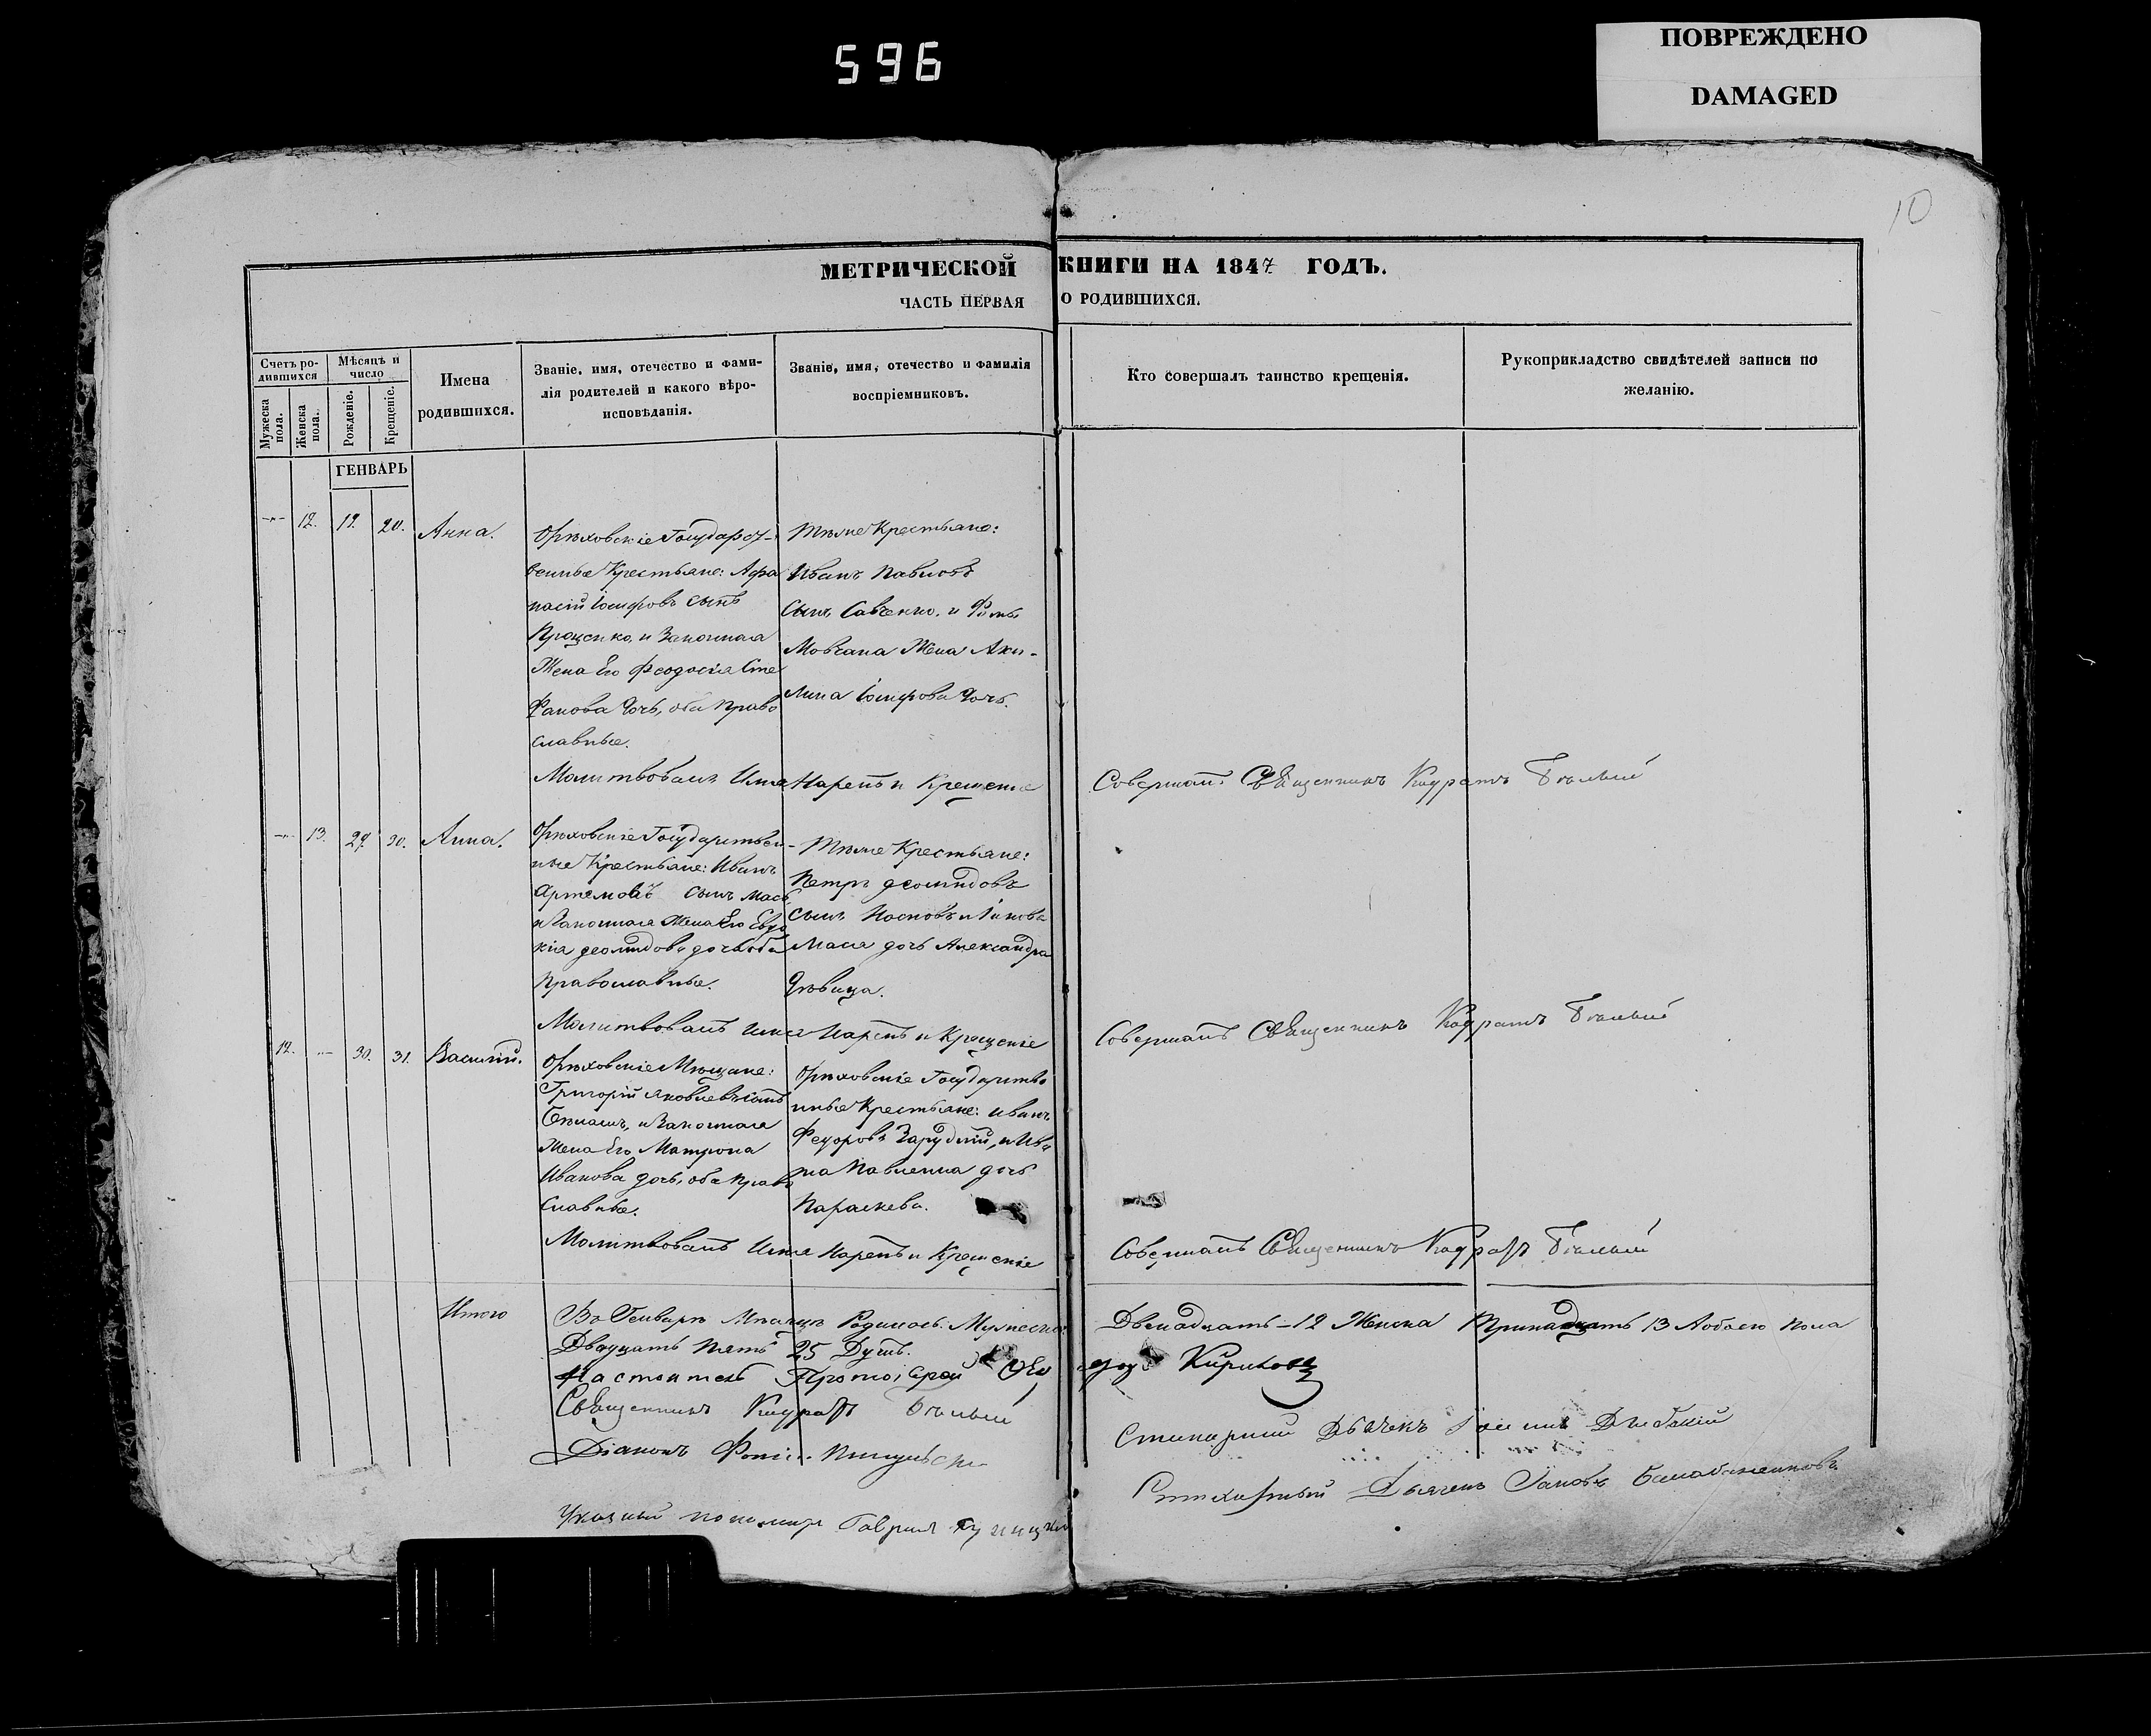 596
ПОВРЕЖДЕНО
DAMAGED
10
МЕТРИЧЕСКОЙ КНИГИ НА 1847 ГОДЪ.
ЧАСТЬ ПЕРВАЯ О РОДИВШИХСЯ.
Счетъ ро-
дившихся
Мужеска пола.
Женска пола.
Мѣсяцъ и
число
Рожденіе.
Крещеніе.
Имена
родившихся.
Званіе, имя, отечество и фами-
лія родителей и какого вѣро-
исповѣданія.
Званіе, имя, отечество и фамилія
воспріемниковъ.
Кто совершалъ таинство крещенія.
Рукоприкладство свидѣтелей записи по
желанію.
ГЕНВАРЬ
12. 20. Анна.
Орѣховскіе Государст-
венные Крестьяне: Афа
насій Іосифовъ сынъ
Проценко, и Законная
Жена Его Феодосія Сте
Фанова дочь, оба Право
славные.
Тѣже Крестьяне:
Иванъ Павловъ
Сынъ Савченко. и Фомы
Мовчана Жена Аки-
лина Іосифова дочь.
Молитвовалъ Имя Нарекъ и Крещеніе
Совершалъ Священникъ Кодратъ Бѣлый
13. 29. 30. Анна.
Орѣховскіе Государствен-
ные Крестьяне: Иванъ
Артемовъ сынъ
и Законная Жена Его Евдо
кія Деомидова дочь оба
Православные.
Тѣже Крестьяне:
Петръ Деомидовъ
Сынъ Носковъ и Іакова
дочь Александра
Дѣвица.
Молитвовалъ Имя Нарекъ и Крещеніе
Совершалъ Священникъ Кодратъ Бѣлый
12. 30. 31. Василій.
Орѣховскіе Мѣщане:
Григорій Яковлевъ сынъ
и Законная
Жена Его Матрона
Иванова дочь, оба Право
Славные.
Орѣховскіе Государстве
нные Крестьяне: Иванъ
Федоровъ Зарудній, и Ива
на Павленка дочь
Параскева.
Молитвовалъ Имя Нарекъ и Крещеніе
Совершалъ Священникъ Кодратъ Бѣлый
Итого
Въ Генварѣ Мѣсяцѣ Родилось: Мужеска: Двенадцать - 12 Женска Тринадцать 13 Аобоего пола
Двадцать пять 25 Душъ.
Настоятель Протоіерей Кириловъ
Священникъ Кодратъ Бѣлый
Діаконъ
Стихарный Дьячекъ
Стихарный Дьячекъ Іаковъ
Указный пономарь Гавриилъ